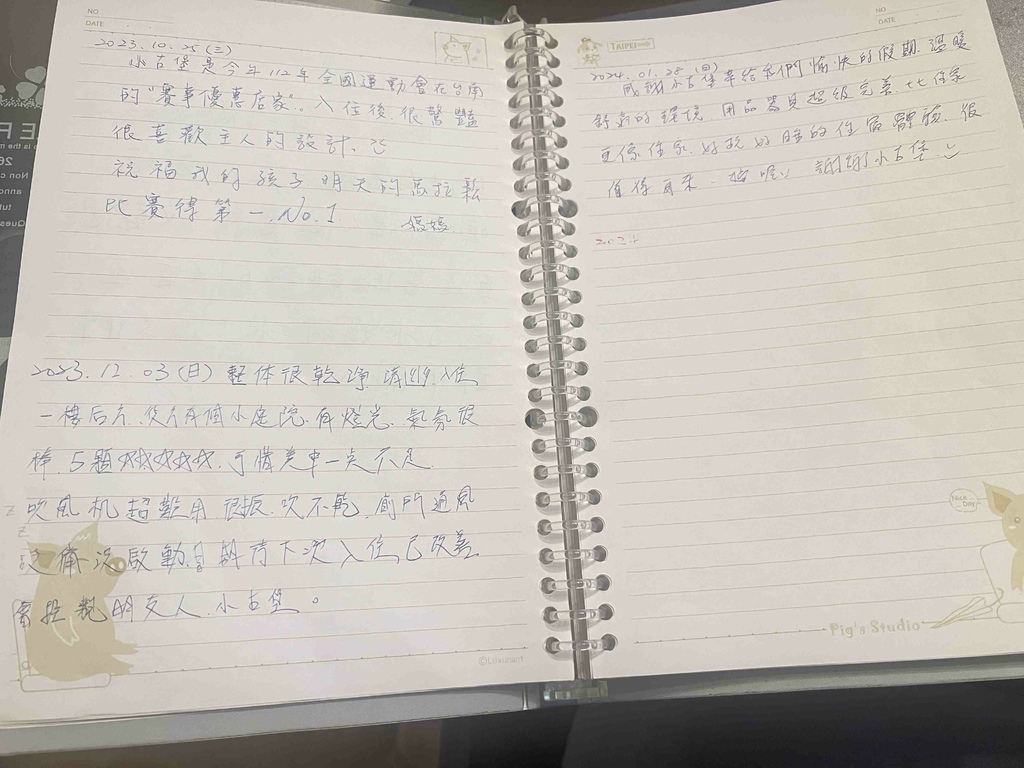 NO
DATE
2023.10.25(三)
小古堡是今年112年全國運動會在台南
的"賽事優惠店家"..入住後很驚豔
很喜歡主人的設計.
祝福我的孩子明天的馬拉松
比賽得第一.No.1
媽媽
2023.12.03(日)整体很乾淨.入住
一樓后方.後方有個小庭院.有燈光.氣氛很
棒.5顆☆☆☆☆☆.可惜美中一点不足.
吹風机超難用很扳.吹不乾.廁所通風
設備沒啟動.期待下次入住已改善
會推親朋友人.小古堡。
©Luxuriant
NO
DATE
TAIPEI
2024.01.28(日)
感謝小古堡帶給我們愉快的假期.溫暖
舒適的環境.用品器具超級完善.比住家
更像住家.好玩好睡的住宿體驗.很
值得再來 謝謝小古堡.
202
Nice
DAY
Pig's Studio